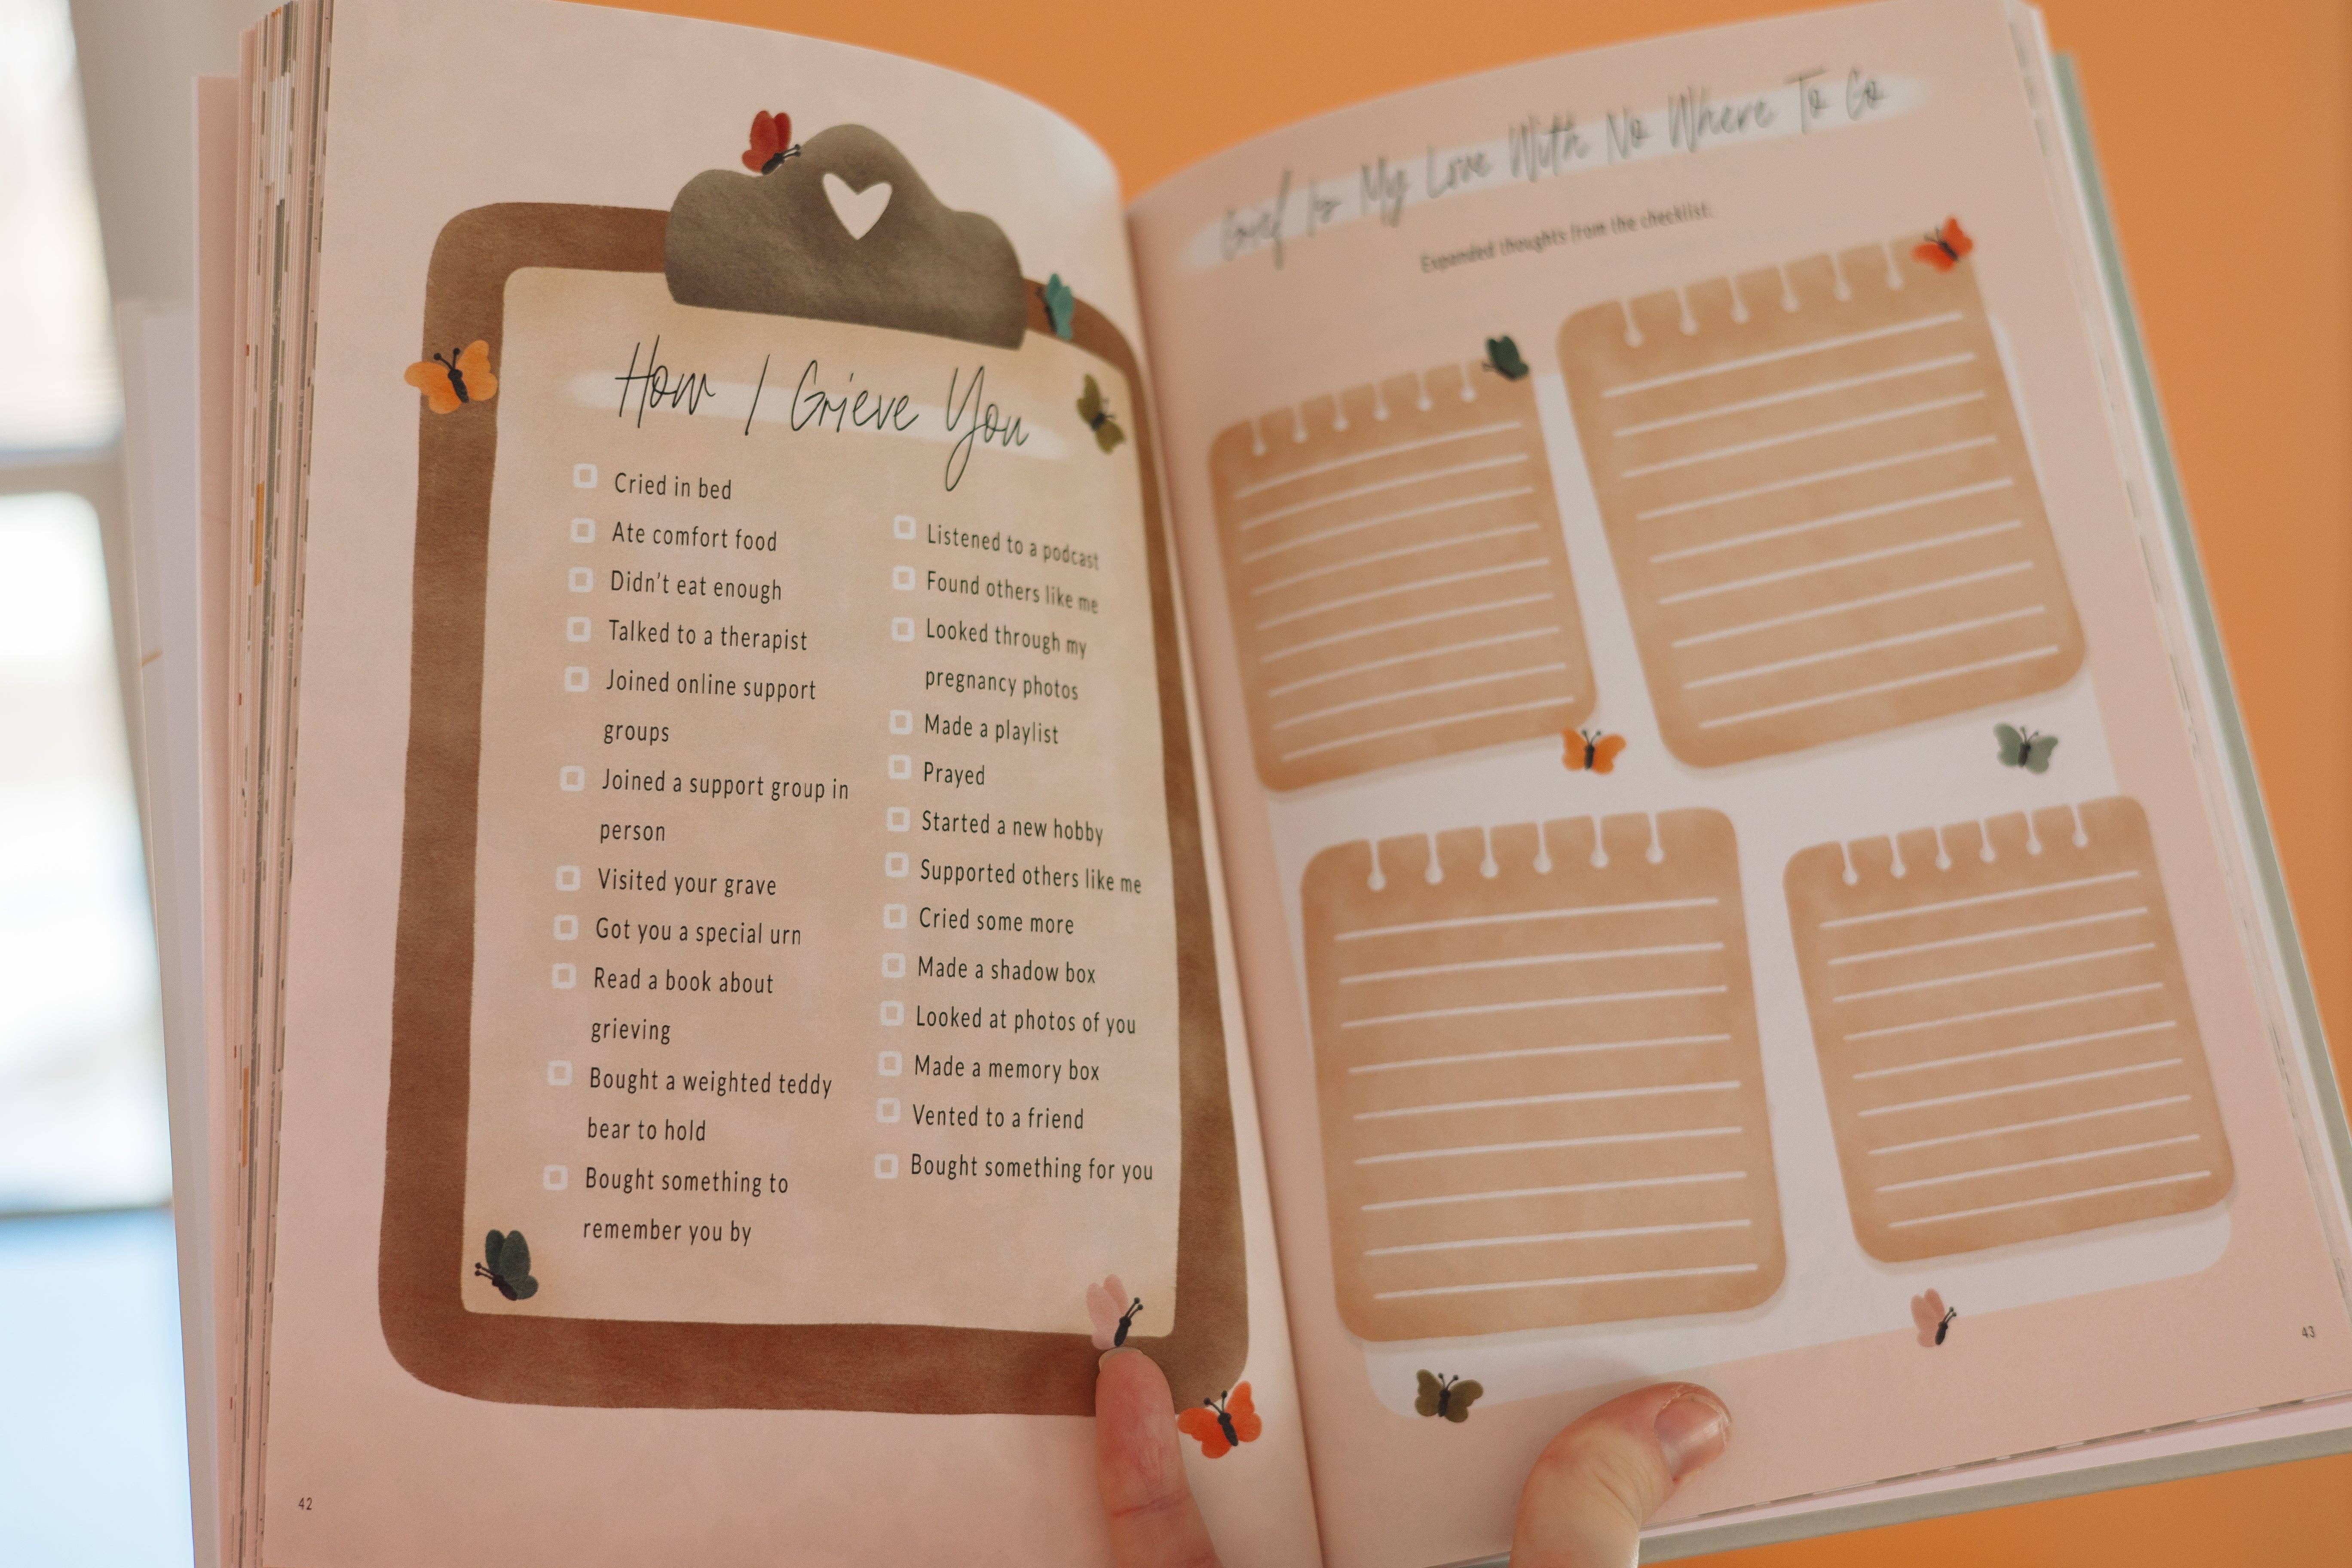 How I Grieve You
Cried in bed
Ate comfort food
Didn't eat enough
Talked to a therapist
Joined online support
groups
Joined a support group in
person
Visited your grave
Got you a special urn
Read a book about
grieving
Bought a weighted teddy
bear to hold
Bought something to
remember you by
Listened to a podcast
Found others like me
Looked through my
pregnancy photos
Made a playlist
Prayed
Started a new hobby
Supported others like me
Cried some more
Made a shadow box
Looked at photos of you
Made a memory box
Vented to a friend
Bought something for you
42
Grief Is My Love With No Where To Go
Expanded thoughts from the checklist:
43